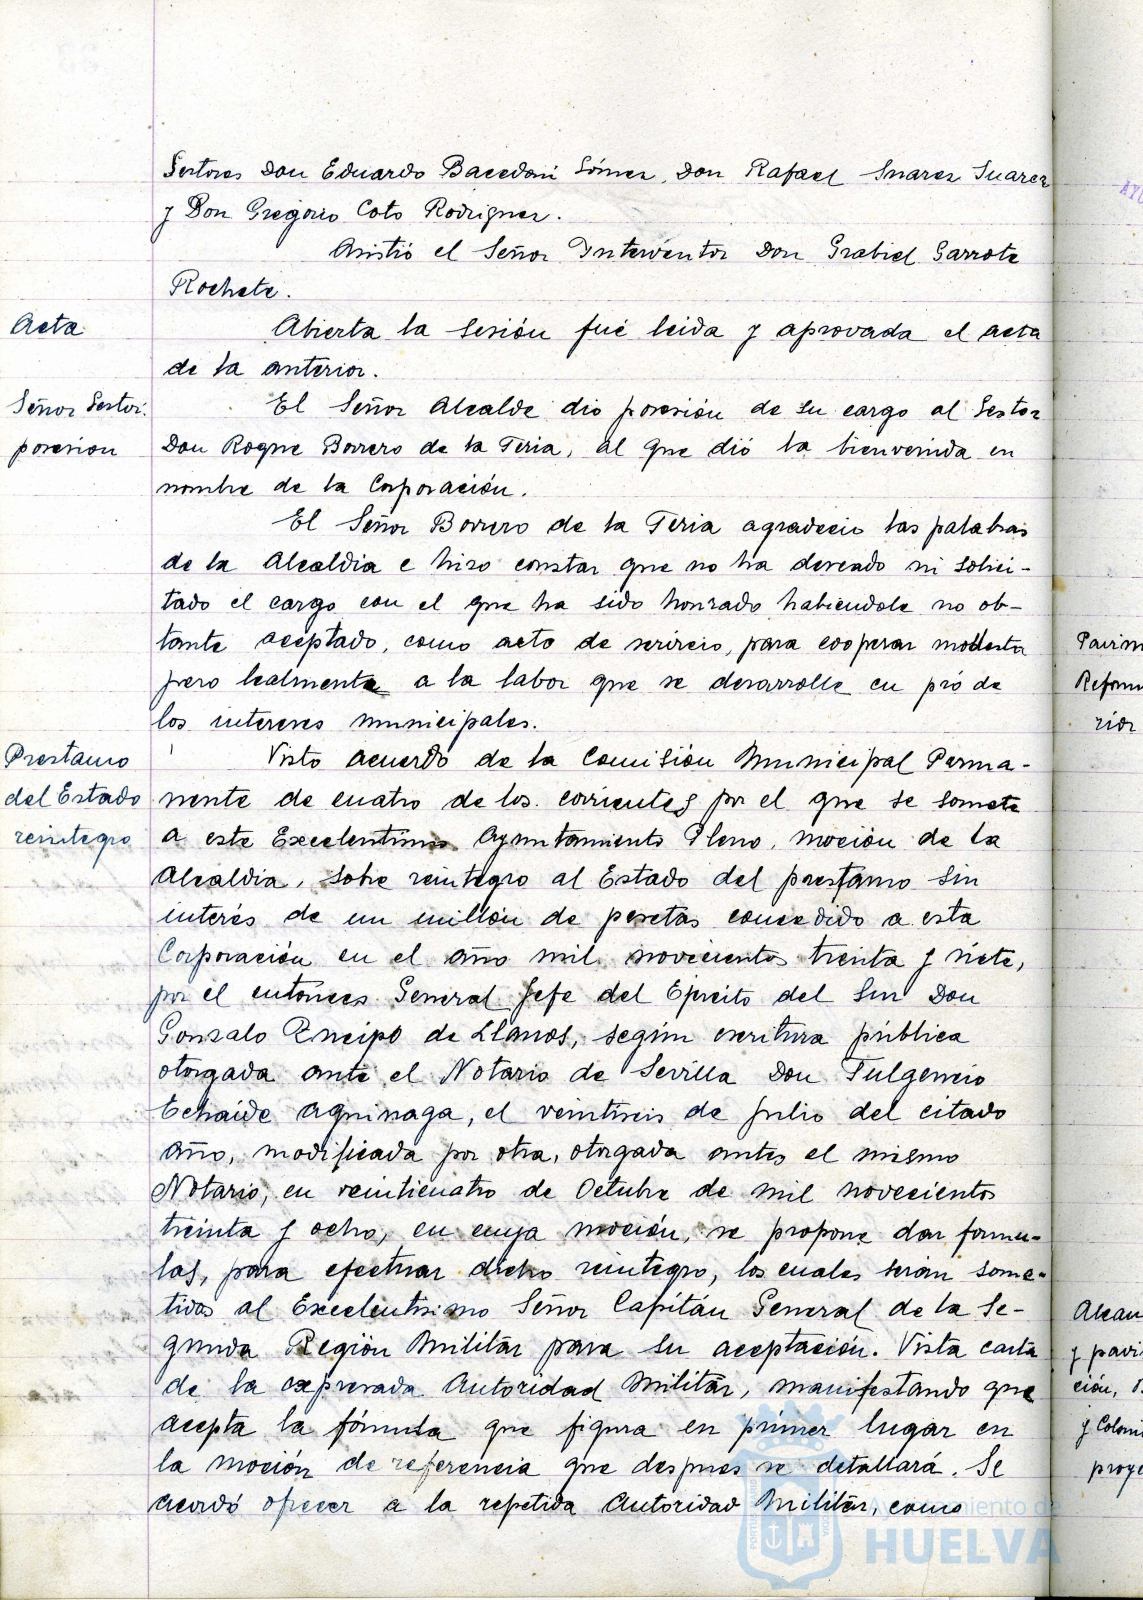 Gestores Don Eduardo Bacedoni Gómez, Don Rafael Suarez Suarez
y Don Gregorio Coto Rodriguez.
Asistió el Señor Interventor Don Grabiel Garrote
Rochete.
Acta
Abierta la sesión fué leida y aprovada el acta
de la anterior.
Señor Gestor.
posesion
El Señor Alcalde dio posesión de su cargo al Gestor
Don Roque Borrero de la Feria, al que dió la bienvenida en
nombre de la Corporación.
El Señor Borrero de la Feria agradecio las palabras
de la Alcaldia e hizo constar que no ha deseado ni solici-
tado el cargo con el que ha sido honrado habiendole no ob-
tante aceptado, como acto de servicio, para cooperar modesta
pero lealmente a la labor que se desarrolle en pró de
los intereses municipales.
Prestamo
del Estado
reintegro
Visto acuerdo de la Comisión Municipal Perma-
nente de cuatro de los corrientes por el que se somete
a este Excelentimo Ayuntamiento Pleno, moción de la
Alcaldia, sobre reintegro al Estado del prestamo sin
interés de un millón de pesetas concedido a esta
Corporación en el año mil novecientos treinta y siete,
por el entonces General Jefe del Ejercito del Sur Don
Gonzalo Queipo de Llanos, según escritura pública
otorgada ante el Notario de Sevilla Don Fulgencio
Echaide Aguinaga, el veintiseis de julio del citado
año, modificada por otra, otorgada antes el mismo
Notario, en veinticuatro de Octubre de mil novecientos
treinta y ocho, en cuya moción, se propone dar formu-
las, para efectuar dicho reintegro, los cuales serán some-
tidas al Excelentisimo Señor Capitán General de la Se-
gunda Región Militar para su aceptación. Vista carta
de la expresada Autoridad Militar, manifestando que
acepta la fórmula que figura en primer lugar en
la moción de referencia que despues se detallará. Se
acordó ofrecer a la repetida Autoridad Militar, como
Reform
Ayuntamiento de
HUELVA